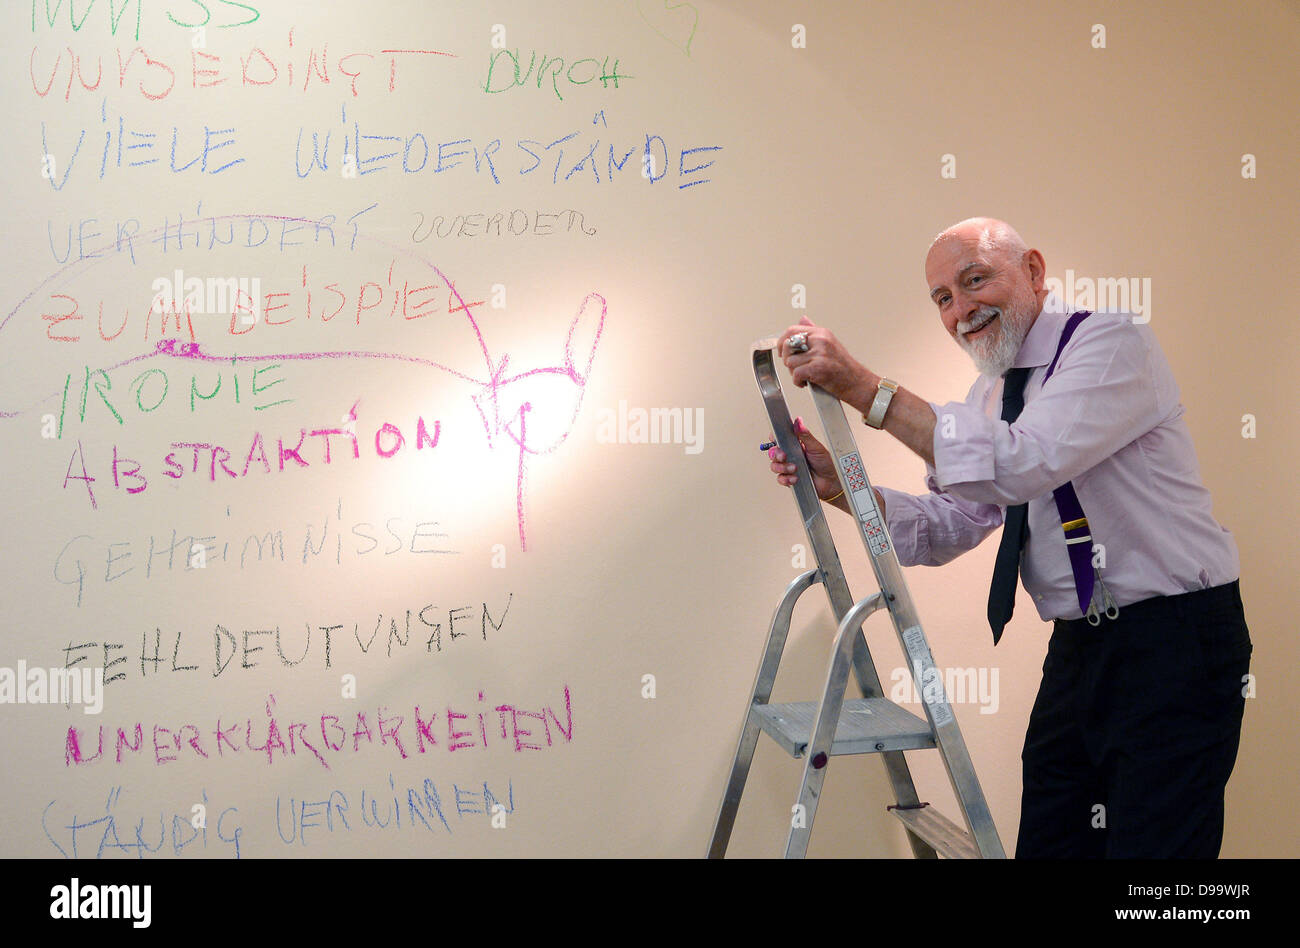 MUSS
UNBEDINGT DURCH
VIELE WIEDERSTÄNDE
VERHINDERT WERDEN
ZUM BEISPIEL
IRONIE
ABSTRAKTION
GEHEIMNISSE
FEHLDEUTUNGEN
UNERKLÄRBARKEITEN
STÄNDIG VERWIRREN
alamy
alamy stock photo
D99WJR
www.alamy.com